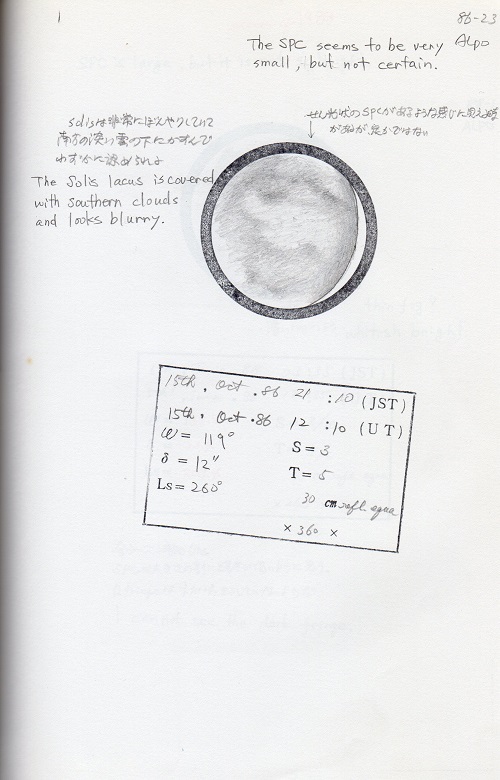 1
86-23
Alpo
The SPC seems to be very
small, but not certain.
Solisは非常にぼんやりしていて
南方の淡い雲の下にかすんで
わずかに認められる
The Solis lacus is covered
with southern clouds
and looks blurry.
15th, Oct. 86 21 :10 (JST)
15th, Oct. 86 12 :10 (UT)
ω= 119° S=3
δ = 12" T=5
Ls= 260° 30 cm refl. equa
× 360 ×